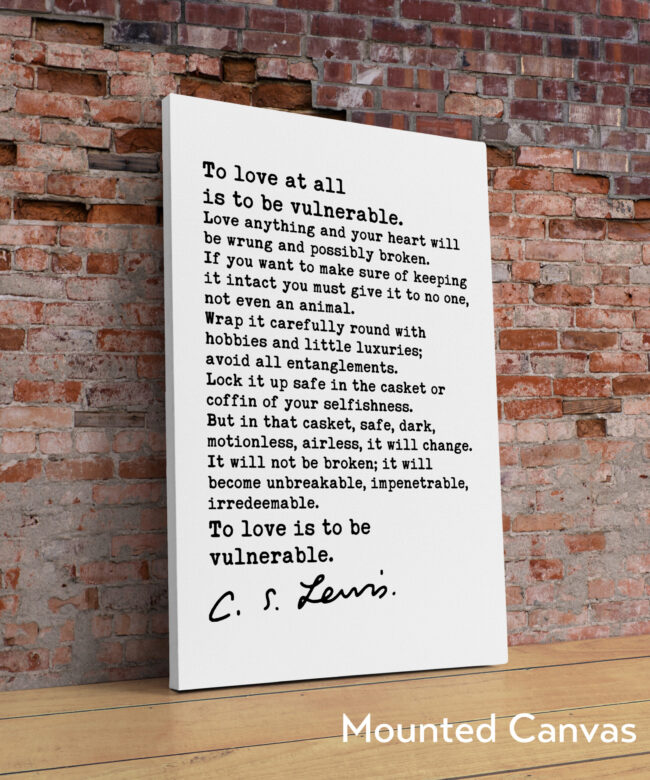 To love at all
is to be vulnerable.
Love anything and your heart will
be wrung and possibly broken.
If you want to make sure of keeping
it intact you must give it to no one,
not even an animal.
Wrap it carefully round with
hobbies and little luxuries;
avoid all entanglements.
Lock it up safe in the casket or
coffin of your selfishness.
But in that casket, safe, dark,
motionless, airless, it will change.
It will not be broken; it will
become unbreakable, impenetrable,
irredeemable.
To love is to be
vulnerable.
C. S. Lewis.
Mounted Canvas